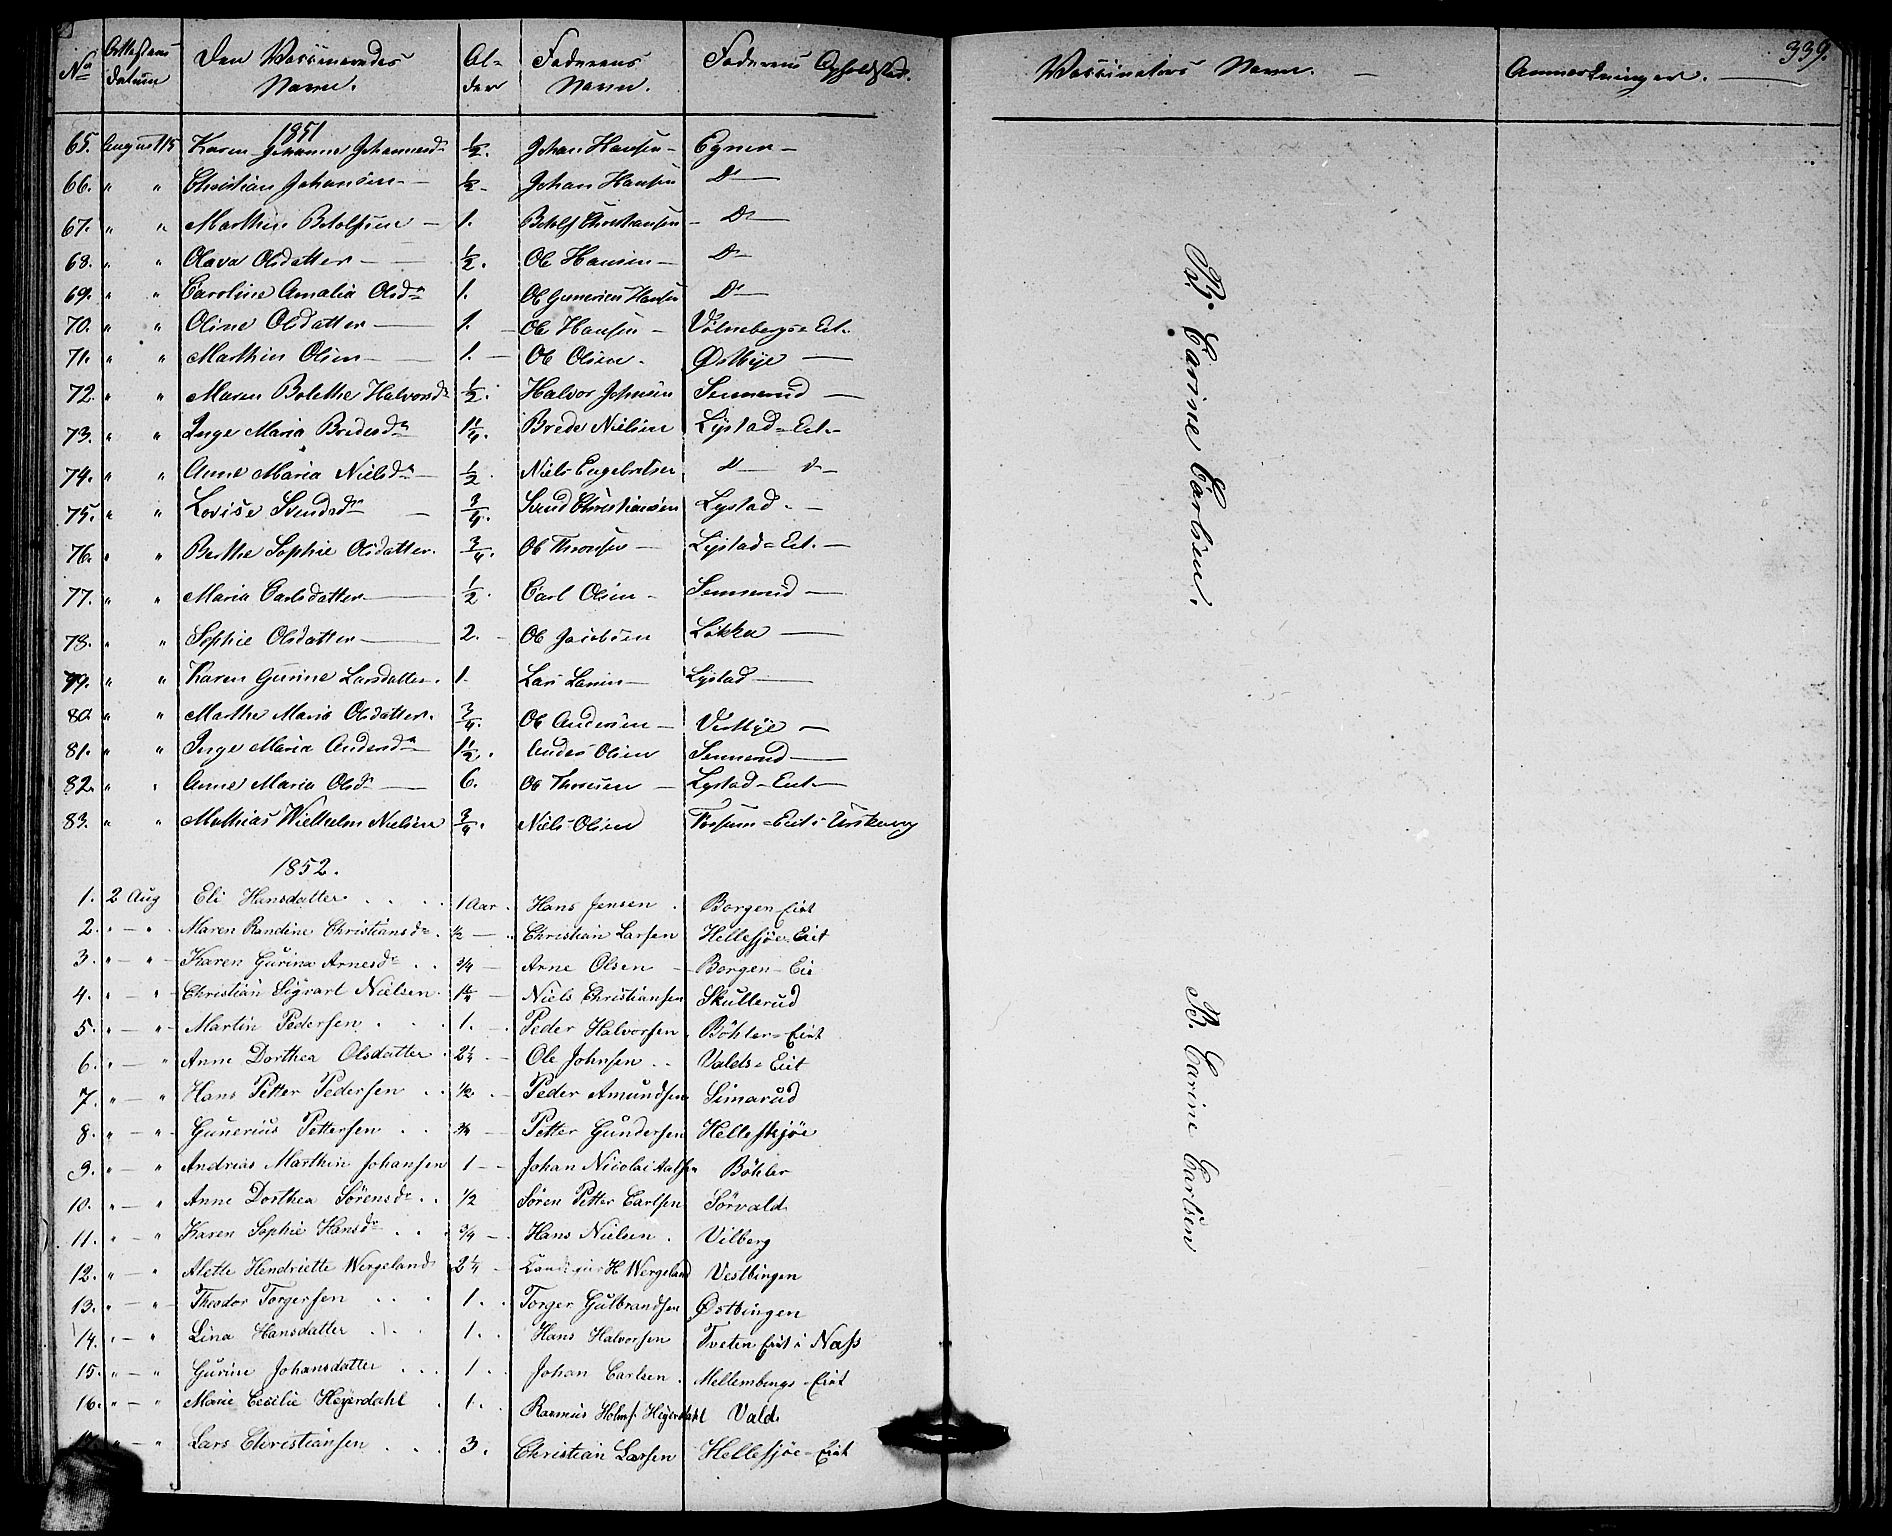 339.
No Attestens Datum Den Vaccineredes Navn. Alder Faderens Navn. Faderens Opholdsted. Vaccinateurs Navn. — Anmerkninger. —
1851
65. August 15 Karen Johanne Johannesdr ½. Johan Hansen — Egner —
66. " " Christian Johansen — ½ - Johan Hansen Do —
67. " " Marthin Betolfsen — 1. Betolf Christiansen — Do —
68. " " Olava Olsdatter — ½. Ole Hansen — Do
69. " " Caroline Amalia Olsdr 1. Ole Gunerius Hansen Do —
70. " " Oline Olsdatter — 1. — Ole Hansen — Eit.
71. " " Marthin Olsen — 1. — Ole Olsen. Østbye —
72. " " Maren Bolethe Halvorsdr ½. Halvor Johnsen —
73. " " Inge Maria Bredesdr 1¼. Brede Nielsen Lystad = Eit. —
74. " " Anne Maria Nielsdr — ½. Niels Engebretsen do — do —
75. " " Lovise Svendsdr — ¾. Svend Christiansen Lystad. —
76. " " Berthe Sophie Olsdatter. ¾. Ole Thoresen — Lystad = Eit. —
77. " " Maria Carlsdatter — ½. Carl Olsen — —
78. " " Sophie Olsdatter — 2. — Ole Jacobsen Løkka —
79. " " Karen Gurine Larsdatter. 1. Lars Larsen — Lystad —
80. " " Marthe Maria Olsdatter. ¾. Ole Andersen — Vestbye —
81. " " Inge Maria Andersdr 1½. Anders Olsen —
82. " " Anne Maria Olsdr — 6. Ole Thoresen — Lystad - Eit. —
83. " " Mathias Wilhelm Nielsen ¾. Niels Olsen Fossum = Eit i Urskoug
B. Carine Carlsen.
1852.
1. 2 Aug Eli Hansdatter . . . 1 Aar . Hans Jensen . Borgen Eiet
2. " — " . Maren Randine Christiansdr . ½ — . Christian Larsen Hellesjøe - Eiet
3. " — " — Karen Gurina Arnesdr . . ¾ — Arne Olsen — Borgen - Eie
4. " — " - Christian Sigvart Nielsen . 1¼ — Niels Christiansen Skullerud
5. " — " - Martin Pedersen . . . 1. — . Peder Halvorsen . Böhler = Eiet
6. " — " Anne Dorthea Olsdatter . 2¼ — Ole Johnsen . . Valds = Eiet
7. " — " Hans Petter Pedersen . . ½. — Peder Amundsen Simarud
8. " — " - Gunerius Pettersen . . ¾ — Petter Gundersen Hellesjøe
9. " — " Andreas Marthin Johansen 1 — - Johan Nicolai Böhler
10. " — " Anne Dorthea Sörensdr . . ½ Sören Petter Carlsen Sörvald.
11. " — " Karen Sophie Hansdr . . . ¾ — . Hans Nielsen . Vilberg
12. " — " Alette Hendriette Wergeland 2¼ — H. Wergeland Vestbingen
13. " — " - Theodor Torgersen . . . 1. . Torger Gulbrandsen Østbingen
14. " — " Lina Hansdatter . . . 1. . Hans Halvorsen Tveten Eiet i Næss
15. " — " Gurine Johansdatter . . . 1 . . Johan Carlsen . Mellembings - Eiet
16. " — " Marie Cecilie Heyerdahl . 1. . Rasmus Heyerdahl Vald.
" — " Lars Christiansen . . . 3. Christian Larsen Hellesjøe - Eiet
B. Carine Carlsen